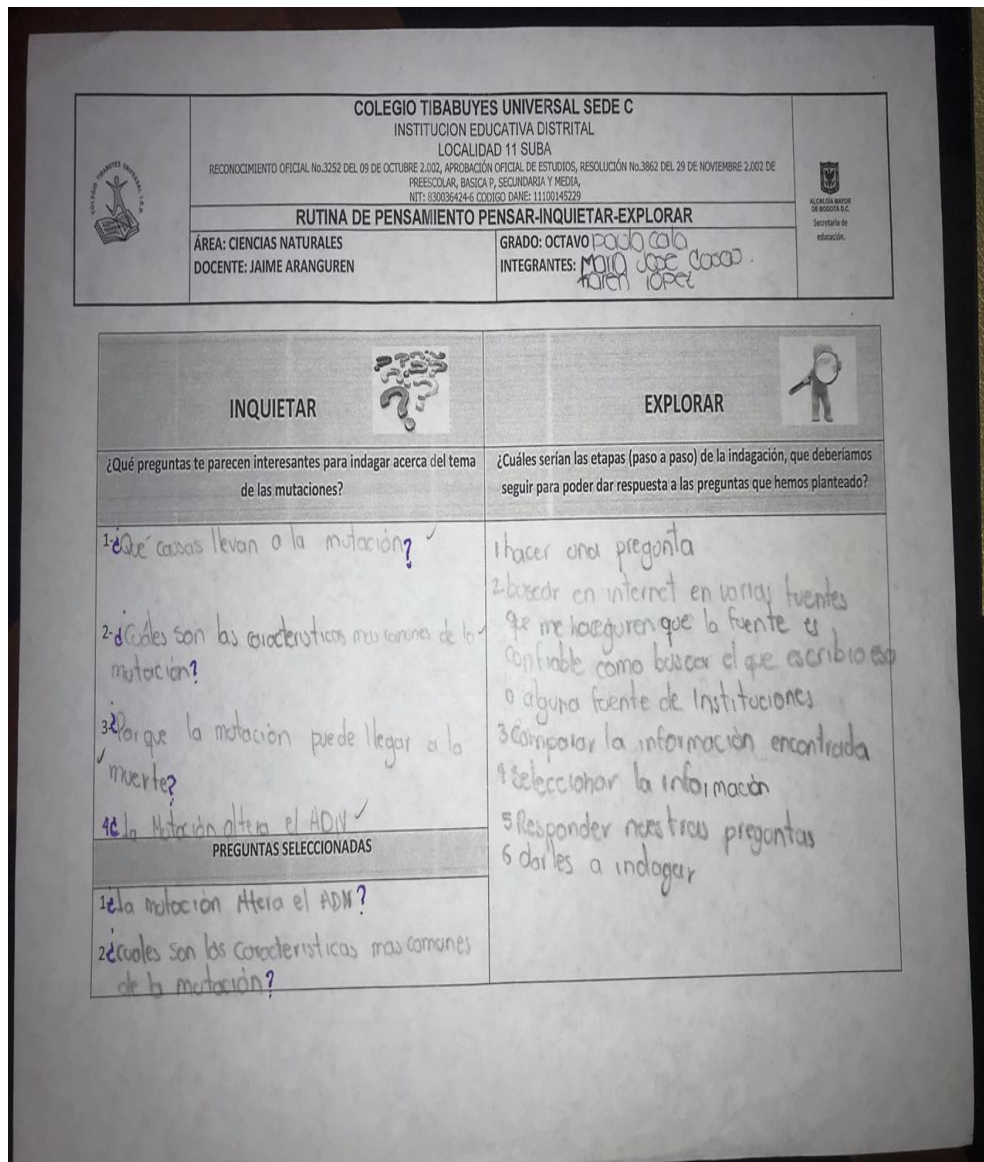 COLEGIO TIBABUYES UNIVERSAL SEDE C
INSTITUCION EDUCATIVA DISTRITAL
LOCALIDAD 11 SUBA
RECONOCIMIENTO OFICIAL No.3252 DEL 09 DE OCTUBRE 2.002, APROBACIÓN OFICIAL DE ESTUDIOS, RESOLUCIÓN No.3862 DEL 29 DE NOVIEMBRE 2.002 DE
PREESCOLAR, BASICA P, SECUNDARIA Y MEDIA,
NIT: 830036424-6 CODIGO DANE: 11100145229
RUTINA DE PENSAMIENTO PENSAR-INQUIETAR-EXPLORAR
ÁREA: CIENCIAS NATURALES
DOCENTE: JAIME ARANGUREN
GRADO: OCTAVO paola
INTEGRANTES: Maria Jose
Karen lopez
ALCALDÍA MAYOR
DE BOGOTÁ D.C.
Secretaría de
educación.
INQUIETAR
¿Qué preguntas te parecen interesantes para indagar acerca del tema
de las mutaciones?
1-¿Qué causas llevan a la mutación?
2-¿Cuáles son las caracteristicas mas comunes de la
mutación?
3-¿Porque la mutación puede llegar a la
muerte?
4¿la Mutación altera el ADN
PREGUNTAS SELECCIONADAS
1¿la mutación Altera el ADN?
2¿cuales son las caracteristicas mas comunes
de la mutación?
EXPLORAR
¿Cuáles serían las etapas (paso a paso) de la indagación, que deberíamos
seguir para poder dar respuesta a las preguntas que hemos planteado?
1 hacer una pregunta
2 buscar en internet en varias fuentes
que me haceguren que la fuente es
confiable como buscar el que escribio eso
o alguna fuente de Instituciones
3 Comparar la información encontrada
4 Seleccionar la información
5 Responder nuestras preguntas
6 darles a indagar